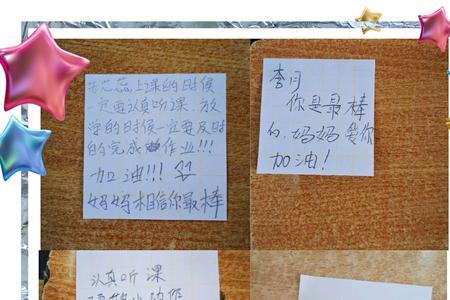 芯蕊上课的时候
一定要认真听课、放
学的时候一定要及时
的完成作业!!!
加油!!!
妈妈相信你最棒
李月
你是最棒
的,妈妈爱你
加油!
认真听课